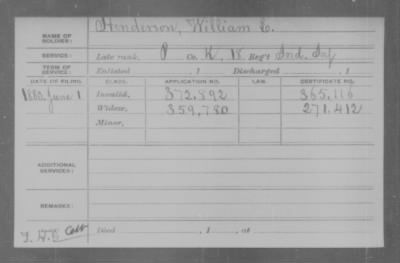 NAME OF SOLDIER: Henderson, William
SERVICE: Late rank, P Co. K, 18 Reg't Ind. Inf
TERM OF SERVICE: Enlisted , 1 Discharged , 1
DATE OF FILING. CLASS. APPLICATION NO. LAW. CERTIFICATE NO.
June 1 Invalid, 372,892 365,116
Widow, 359,780 271,412
Minor,
ADDITIONAL SERVICES:
REMARKS:
Died , 1 , at